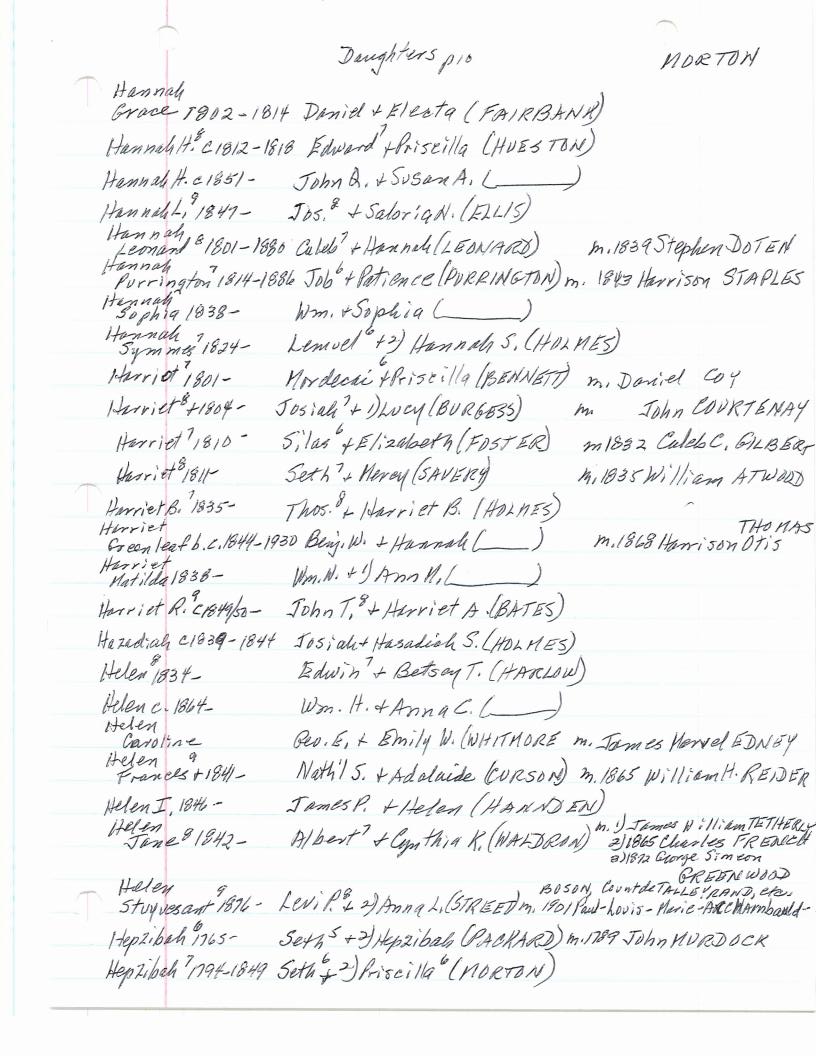 Daughters p10 MORTON
Hannah
Grace 1802-1814 Daniel + Electa (FAIRBANK)
Hannah H.8 c1812-1818 Edward7 + Priscilla (HUESTON)
Hannah H. c1851- John Q. + Susan A. (______)
Hannah L.9 1847- Jos.8 + Saloria N. (ELLIS)
Hannah
Leonard8 1801-1880 Caleb7 + Hannah (LEONARD) m.1839 Stephen DOTEN
Hannah
Purrington7 1814-1886 Job6 + Patience (PURRINGTON) m. 1843 Harrison STAPLES
Hannah
Sophia 1838- Wm. + Sophia (______)
Hannah
Symmes7 1824- Lemuel6 + 2) Hannah S. (HOLMES)
Harriot7 1801- Mordecai6 + Priscilla (BENNETT) m. Daniel COY
Harriet8 +1804- Josiah7 + 1) Lucy (BURGESS) m John COURTENAY
Harriet7 1810- Silas6 + Elizabeth (FOSTER) m1832 Caleb C. GILBERT
Harriet8 1811- Seth7 + Mercy (SAVERY) m.1835 William ATWOOD
Harriet B.7 1835- Thos.8 + Harriet B. (HOLMES)
Harriet THOMAS
Greenleaf b.c.1844-1930 Benj. W. + Hannah (______) m.1868 Harrison Otis
Harriet
Matilda 1838- Wm. N. + 1) Ann M. (______)
Harriet R.9 c1849/50- John T.8 + Harriet A. (BATES)
Hazadiah c1839-1844 Josiah + Hasadiah S. (HOLMES)
Helen8 1834- Edwin7 + Betsey T. (HARLOW)
Helen c. 1864- Wm. H. + Anna C. (______)
Helen
Caroline Geo. E. + Emily W. (WHITMORE m. James Marvel EDNEY
Helen
Frances9 +1841- Nath'l S. + Adelaide (CURSON) m.1865 William H. REIDER
Helen I. 1846- James P. + Helen (HANNDEN)
Helen m. 1) James William TETHERLY
Jane8 1842- Albert7 + Cynthia K. (WALDRON) 2) 1865 Charles FRENCH
3) 1872 George Simeon
GREENWOOD
Helen BOSON, Count de TALLEYRAND, etc.
Stuyvesant9 1876- Levi P.8 + 2) Anna L. (STREET) m. 1901 Paul-Louis-Marie-Archambauld-
Hepzibah6 1765- Seth5 + 2) Hepzibah (PACKARD) m.1789 John MURDOCK
Hepzibah7 1794-1849 Seth6 + 2) Priscilla6 (MORTON)